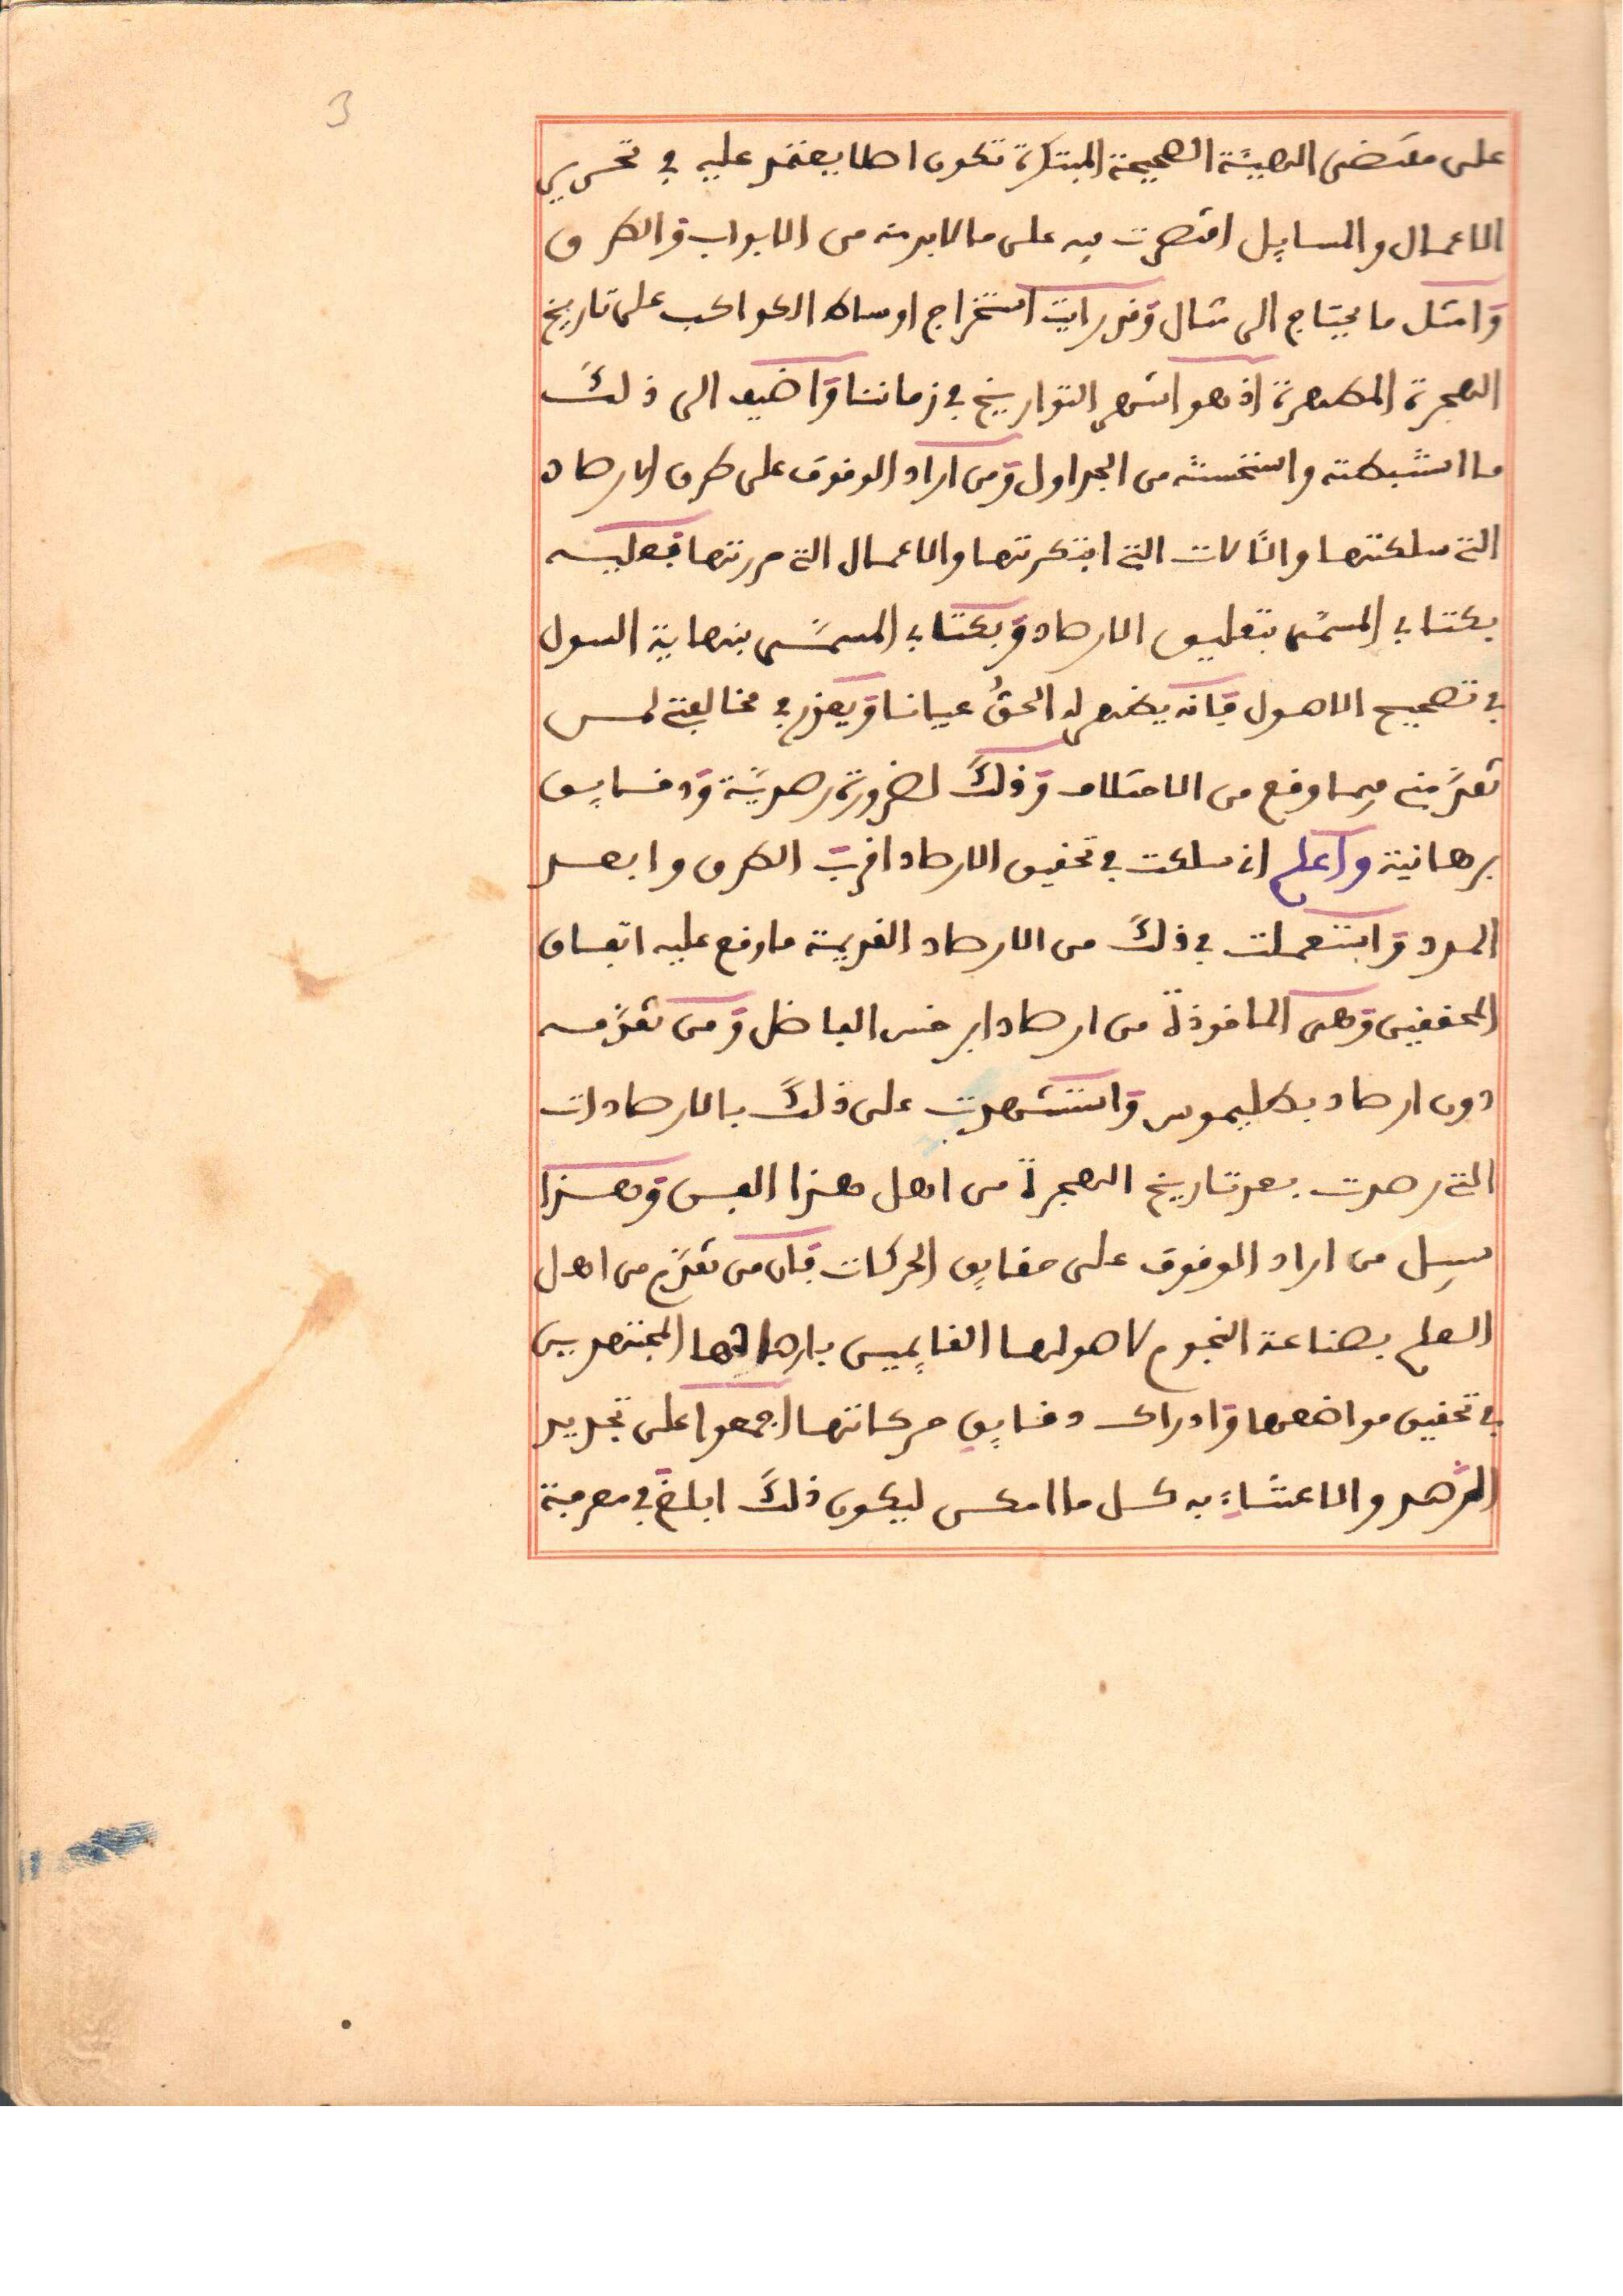 3
على مقتضى الهيئة الصحيحة المبتكرة تكون اصلا يعتمد عليه في تحرير
الاعمال والمسايل اقتصرت فيه على ما لا بد منه من الابواب والطرق
وامثل ما يحتاج الى مثال وقد رايت استخراج اوساط الكواكب على تاريخ
الهجرة المطهرة اذ هو اشهر التواريخ في زماننا واضيف الى ذلك
ما استنبطته واستحسنته من الجداول ومن اراد الوقوف على طرق الارصاد
التي سلكتها والآلات التي ابتكرتها والاعمال التي حررتها فعليه
بكتابي المسمى بتعليق الارصاد وبكتابي المسمى بنهاية السول
في تصحيح الاصول فانه يظهر له الحق عيانا ويعذرني في مخالفتي لمن
تقدمني فيما وقع من الاختلاف وذلك لضرورة رصدية ودقايق
برهانية واعلم اني سلكت في تحقيق الارصاد اقرب الطرق وابعد
المدد واستعملت في ذلك من الارصاد القديمة ما وقع عليه اتفاق
المحققين وهي الماخوذة من ارصاد ابرخس الفاضل ومن تقدمه
دون ارصاد بطليموس واستشهدت على ذلك بالارصادات
التي رصدت بعد تاريخ الهجرة من اهل هذا الفن وهذا
سبيل من اراد الوقوف على حقايق الحركات فان من تقدم من اهل
العلم بصناعة النجوم لاصولها القايمين بارصادها المجتهدين
في تحقيق مواضعها وادراك دقايق حركاتها اجمعوا على تجديد
الرصد والاعتناء به كل ما امكن ليكون ذلك ابلغ في معرفة